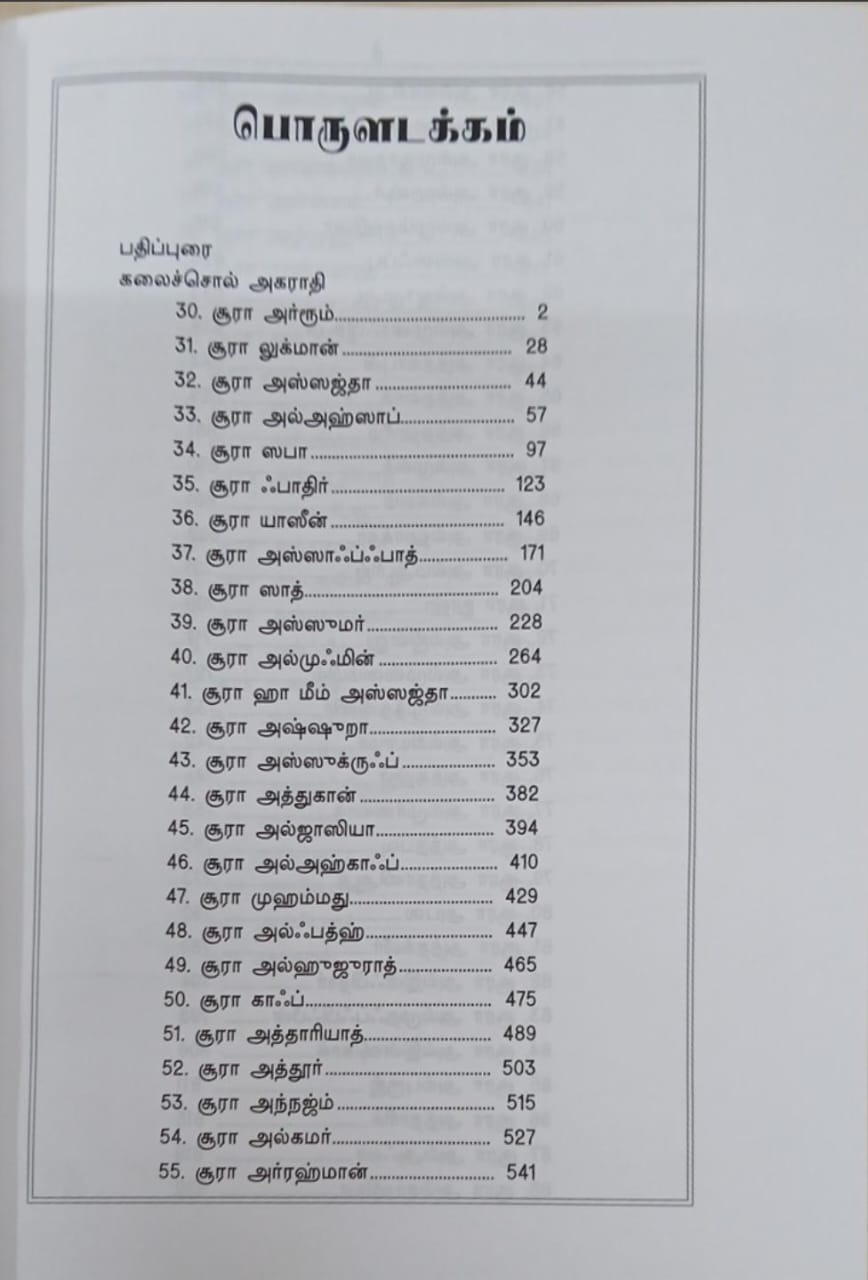 பொருளடக்கம்
பதிப்புரை
கலைச்சொல் அகராதி
30. சூரா அர்ரூம்.......................................... 2
31. சூரா லுக்மான்...................................... 28
32. சூரா அஸ்ஸஜ்தா.............................. 44
33. சூரா அல்அஹ்ஸாப்......................... 57
34. சூரா ஸபா............................................. 97
35. சூரா ஃபாதிர்...................................... 123
36. சூரா யாஸீன்...................................... 146
37. சூரா அஸ்ஸாஃப்ஃபாத்.................... 171
38. சூரா ஸாத்.......................................... 204
39. சூரா அஸ்ஸுமர்............................. 228
40. சூரா அல்முஃமின்.......................... 264
41. சூரா ஹா மீம் அஸ்ஸஜ்தா.......... 302
42. சூரா அஷ்ஷுறா............................ 327
43. சூரா அஸ்ஸுக்ருஃப்..................... 353
44. சூரா அத்துகான்.............................. 382
45. சூரா அல்ஜாஸியா.......................... 394
46. சூரா அல்அஹ்காஃப்...................... 410
47. சூரா முஹம்மது................................ 429
48. சூரா அல்ஃபத்ஹ்............................ 447
49. சூரா அல்ஹுஜுராத்..................... 465
50. சூரா காஃப்......................................... 475
51. சூரா அத்தாரியாத்............................ 489
52. சூரா அத்தூர்..................................... 503
53. சூரா அந்நஜ்ம்................................... 515
54. சூரா அல்கமர்................................... 527
55. சூரா அர்ரஹ்மான்............................ 541